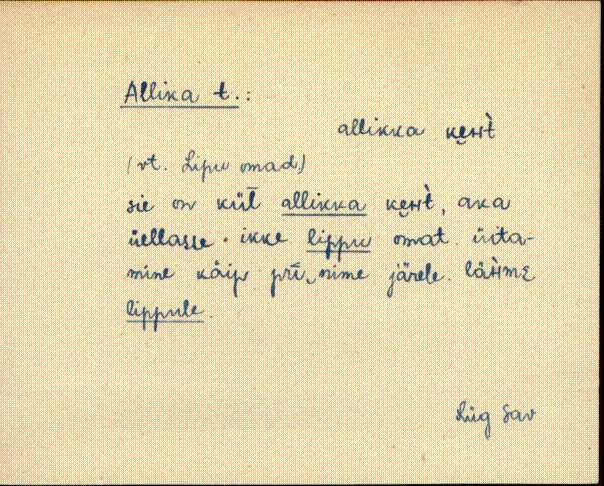 Allika t.:
allikka keʜt̀
(vt. Lipu omad)
sie on kül̄ allikka keʜt̀, aʀa
üellasse ikke lippu omat. üita-
mine käip pr̄i, nime järele. lähme
lippule.
Lüg Sav